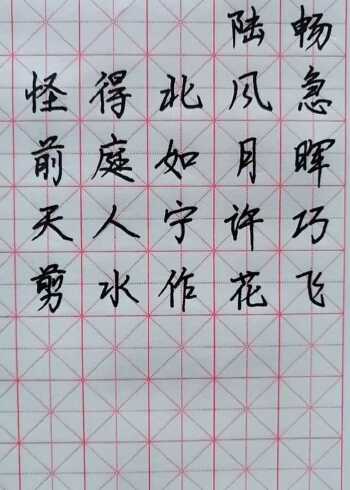 陆畅
怪得北风急
前庭如月晖
天人宁许巧
剪水作花飞